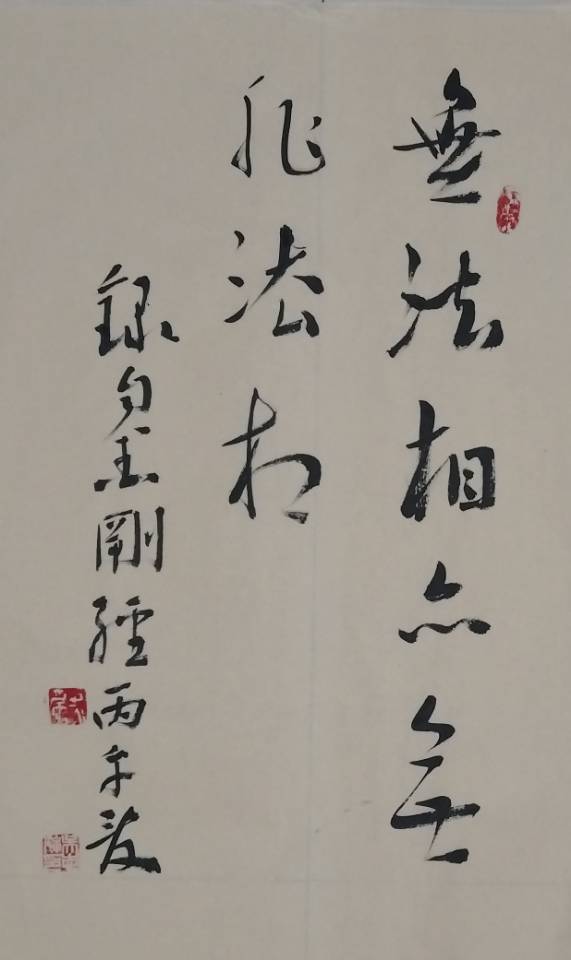 無法相亦無
非法相
錄自金剛經丙午